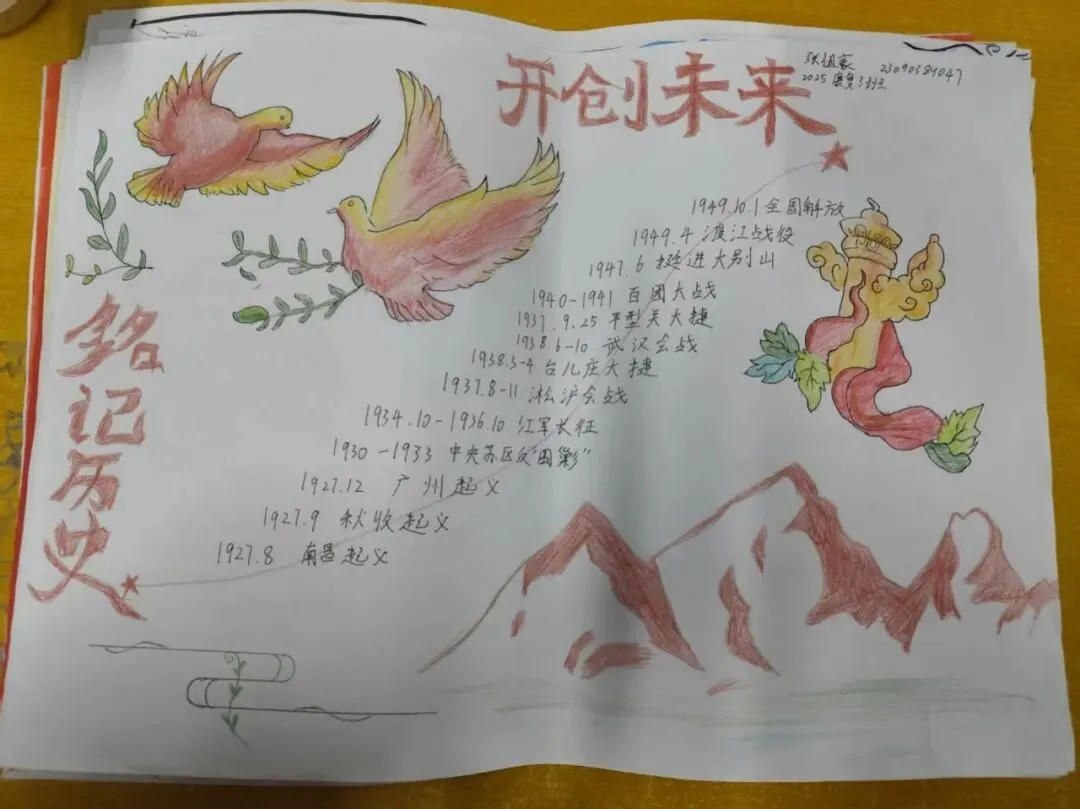 开创未来
23090384047
2025 康复3班
铭记历史
1949.10.1 全国解放
1949.4 渡江战役
1947.6 挺进大别山
1940-1941 百团大战
1937.9.25 平型关大捷
1938.6-10 武汉会战
1938.3-4 台儿庄大捷
1937.8-11 淞沪会战
1934.10-1936.10 红军长征
1930-1933 中央苏区反“围剿”
1927.12 广州起义
1927.9 秋收起义
1927.8 南昌起义